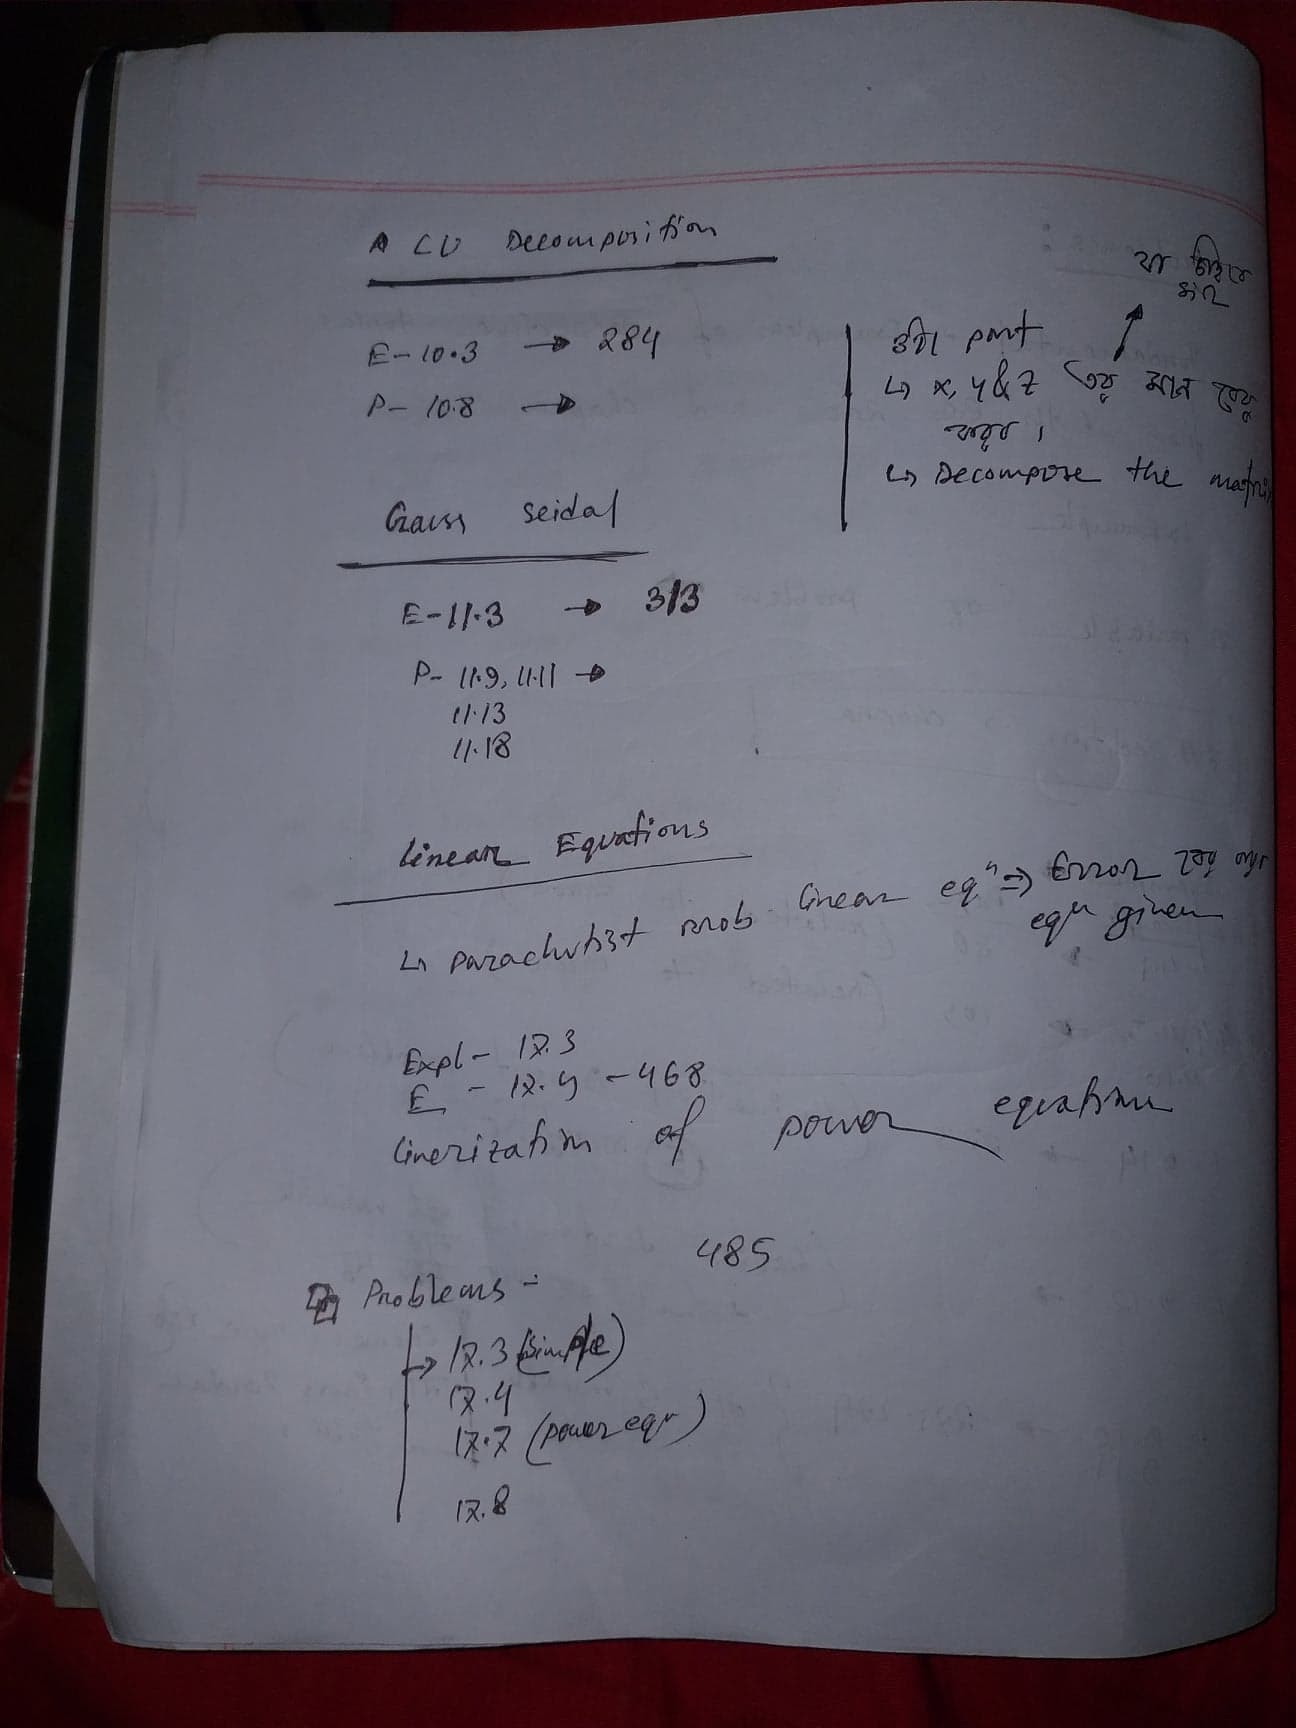 LU Decomposition
E-10.3 → 284
P- 10.8 →
part
↳ x, y & z এর মান বের
করব।
↳ Decompose the matrix
Gauss seidal
E-11.3 → 313
P- 11.9, 11.11 →
11.13
11.18
Linear Equations
↳ parachutist prob linear eqⁿ ⇒ Error
eqn given
Expl - 17.3
E - 17.4 - 468
Linerization of power equations
485
Problems :-
→ 17.3 (simple)
17.4
17.7 (power eqn)
17.8